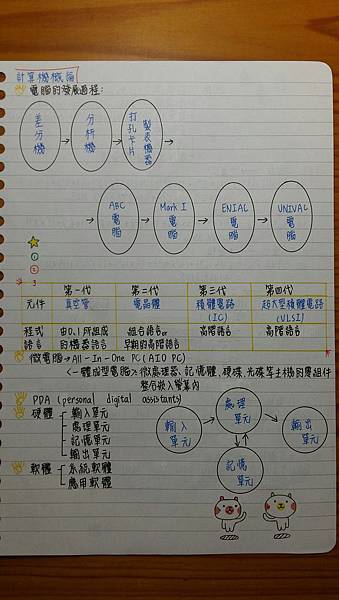 計算機概論
電腦的發展過程:
差分機 → 分析機 → 打孔卡片製表機器 →
→ ABC電腦 → Mark I電腦 → ENIAL電腦 → UNIVAL電腦
①
②
3
第一代 第二代 第三代 第四代
元件 真空管 電晶體 積體電路(IC) 超大型積體電路(VLSI)
程式語言 由0.1所組成的機器語言 組合語言or早期的高階語言 高階語言 高階語言
微電腦→All-In-One PC(AIO PC)
<一體成型電腦>:微處理器、記憶體、硬碟、光碟等主機的零組件
整何嵌入螢幕內
PDA (personal digital assistants)
硬體 輸入單元
處理單元
記憶單元
輸出單元
軟體 系統軟體
應用軟體
輸入單元 → 處理單元 → 輸出單元
記憶單元